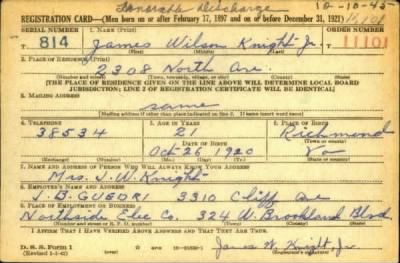 Honorable Discharge 10-10-45
REGISTRATION CARD—(Men born on or after February 17, 1897 and on or before December 31, 1921)
SERIAL NUMBER 1. NAME (Print) ORDER NUMBER
T 814 James Wilson Knight Jr. T 11101
(First) (Middle) (Last)
2. PLACE OF RESIDENCE (Print)
2308 North Ave.
(Number and street) (Town, township, village, or city) (County) (State)
[THE PLACE OF RESIDENCE GIVEN ON THE LINE ABOVE WILL DETERMINE LOCAL BOARD
JURISDICTION; LINE 2 OF REGISTRATION CERTIFICATE WILL BE IDENTICAL]
3. MAILING ADDRESS
same
[Mailing address if other than place indicated on line 2. If same insert word same]
4. TELEPHONE 5. AGE IN YEARS 6. PLACE OF BIRTH
38534 21 Richmond
DATE OF BIRTH (Town or county)
Oct 26 1920 Va
(Exchange) (Number) (Mo.) (Day) (Yr.) (State or country)
7. NAME AND ADDRESS OF PERSON WHO WILL ALWAYS KNOW YOUR ADDRESS
Mrs. J. W. Knight
8. EMPLOYER'S NAME AND ADDRESS
J. B. 3310 Cliff Ave
9. PLACE OF EMPLOYMENT OR BUSINESS
Northside Elec Co. 324 W. Brookland Blvd
(Number and street or R. F. D. number) (Town) (County) (State)
I AFFIRM THAT I HAVE VERIFIED ABOVE ANSWERS AND THAT THEY ARE TRUE.
D. S. S. Form 1
(Revised 1-1-42) (over) James W. Knight, Jr.
(Registrant's signature)